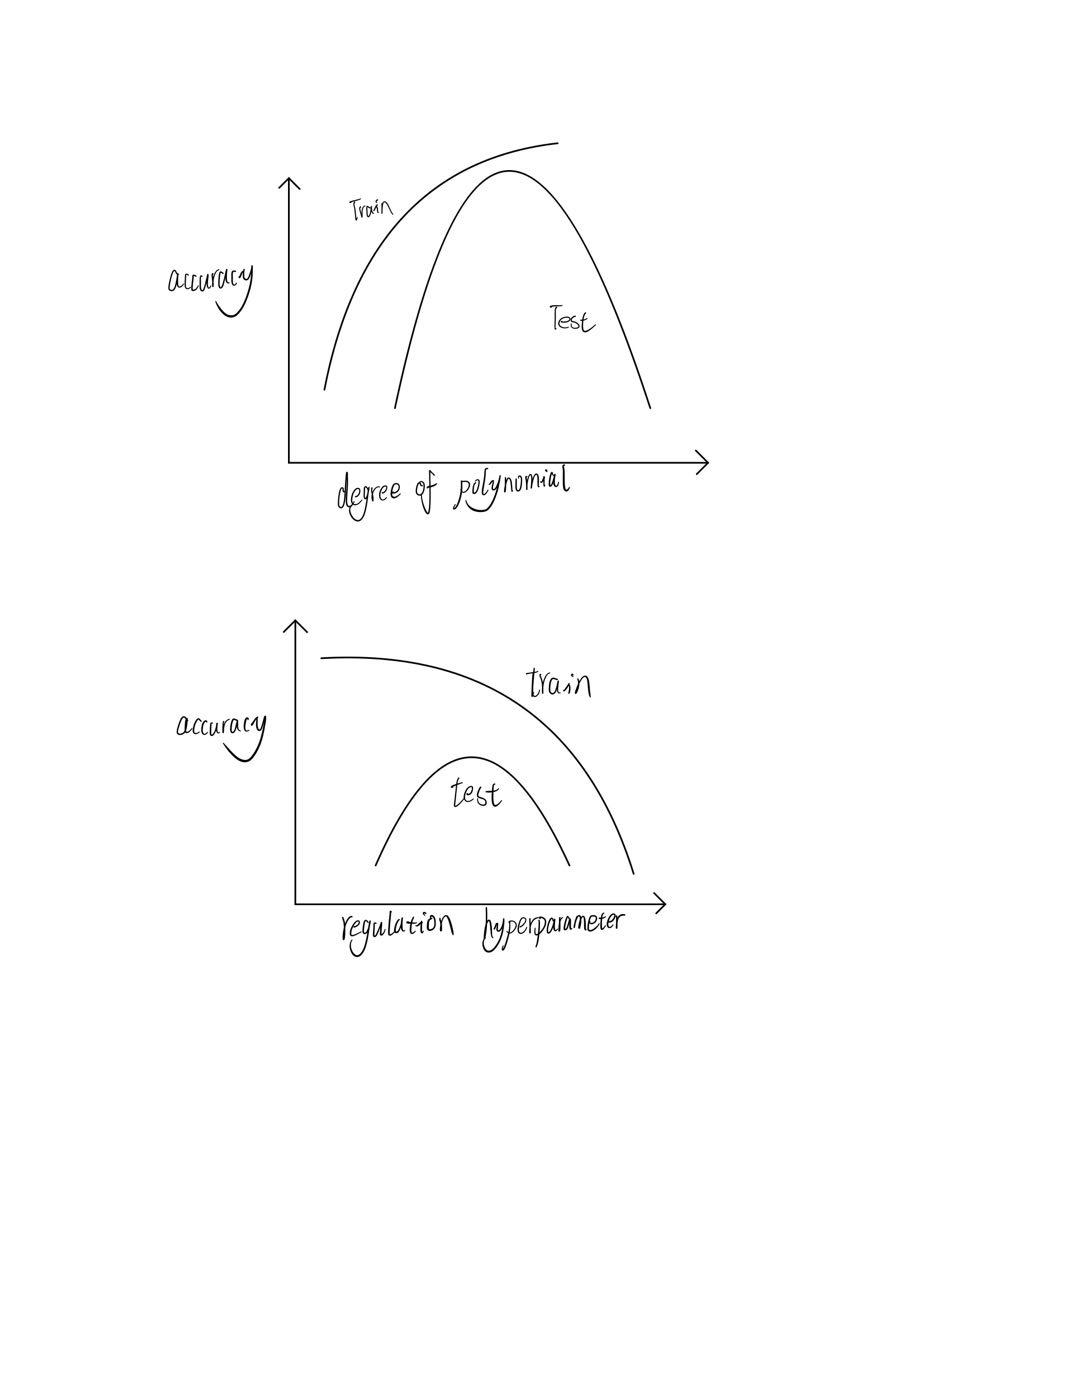 Train
accuracy
Test
degree of polynomial
train
accuracy
test
regulation hyperparameter